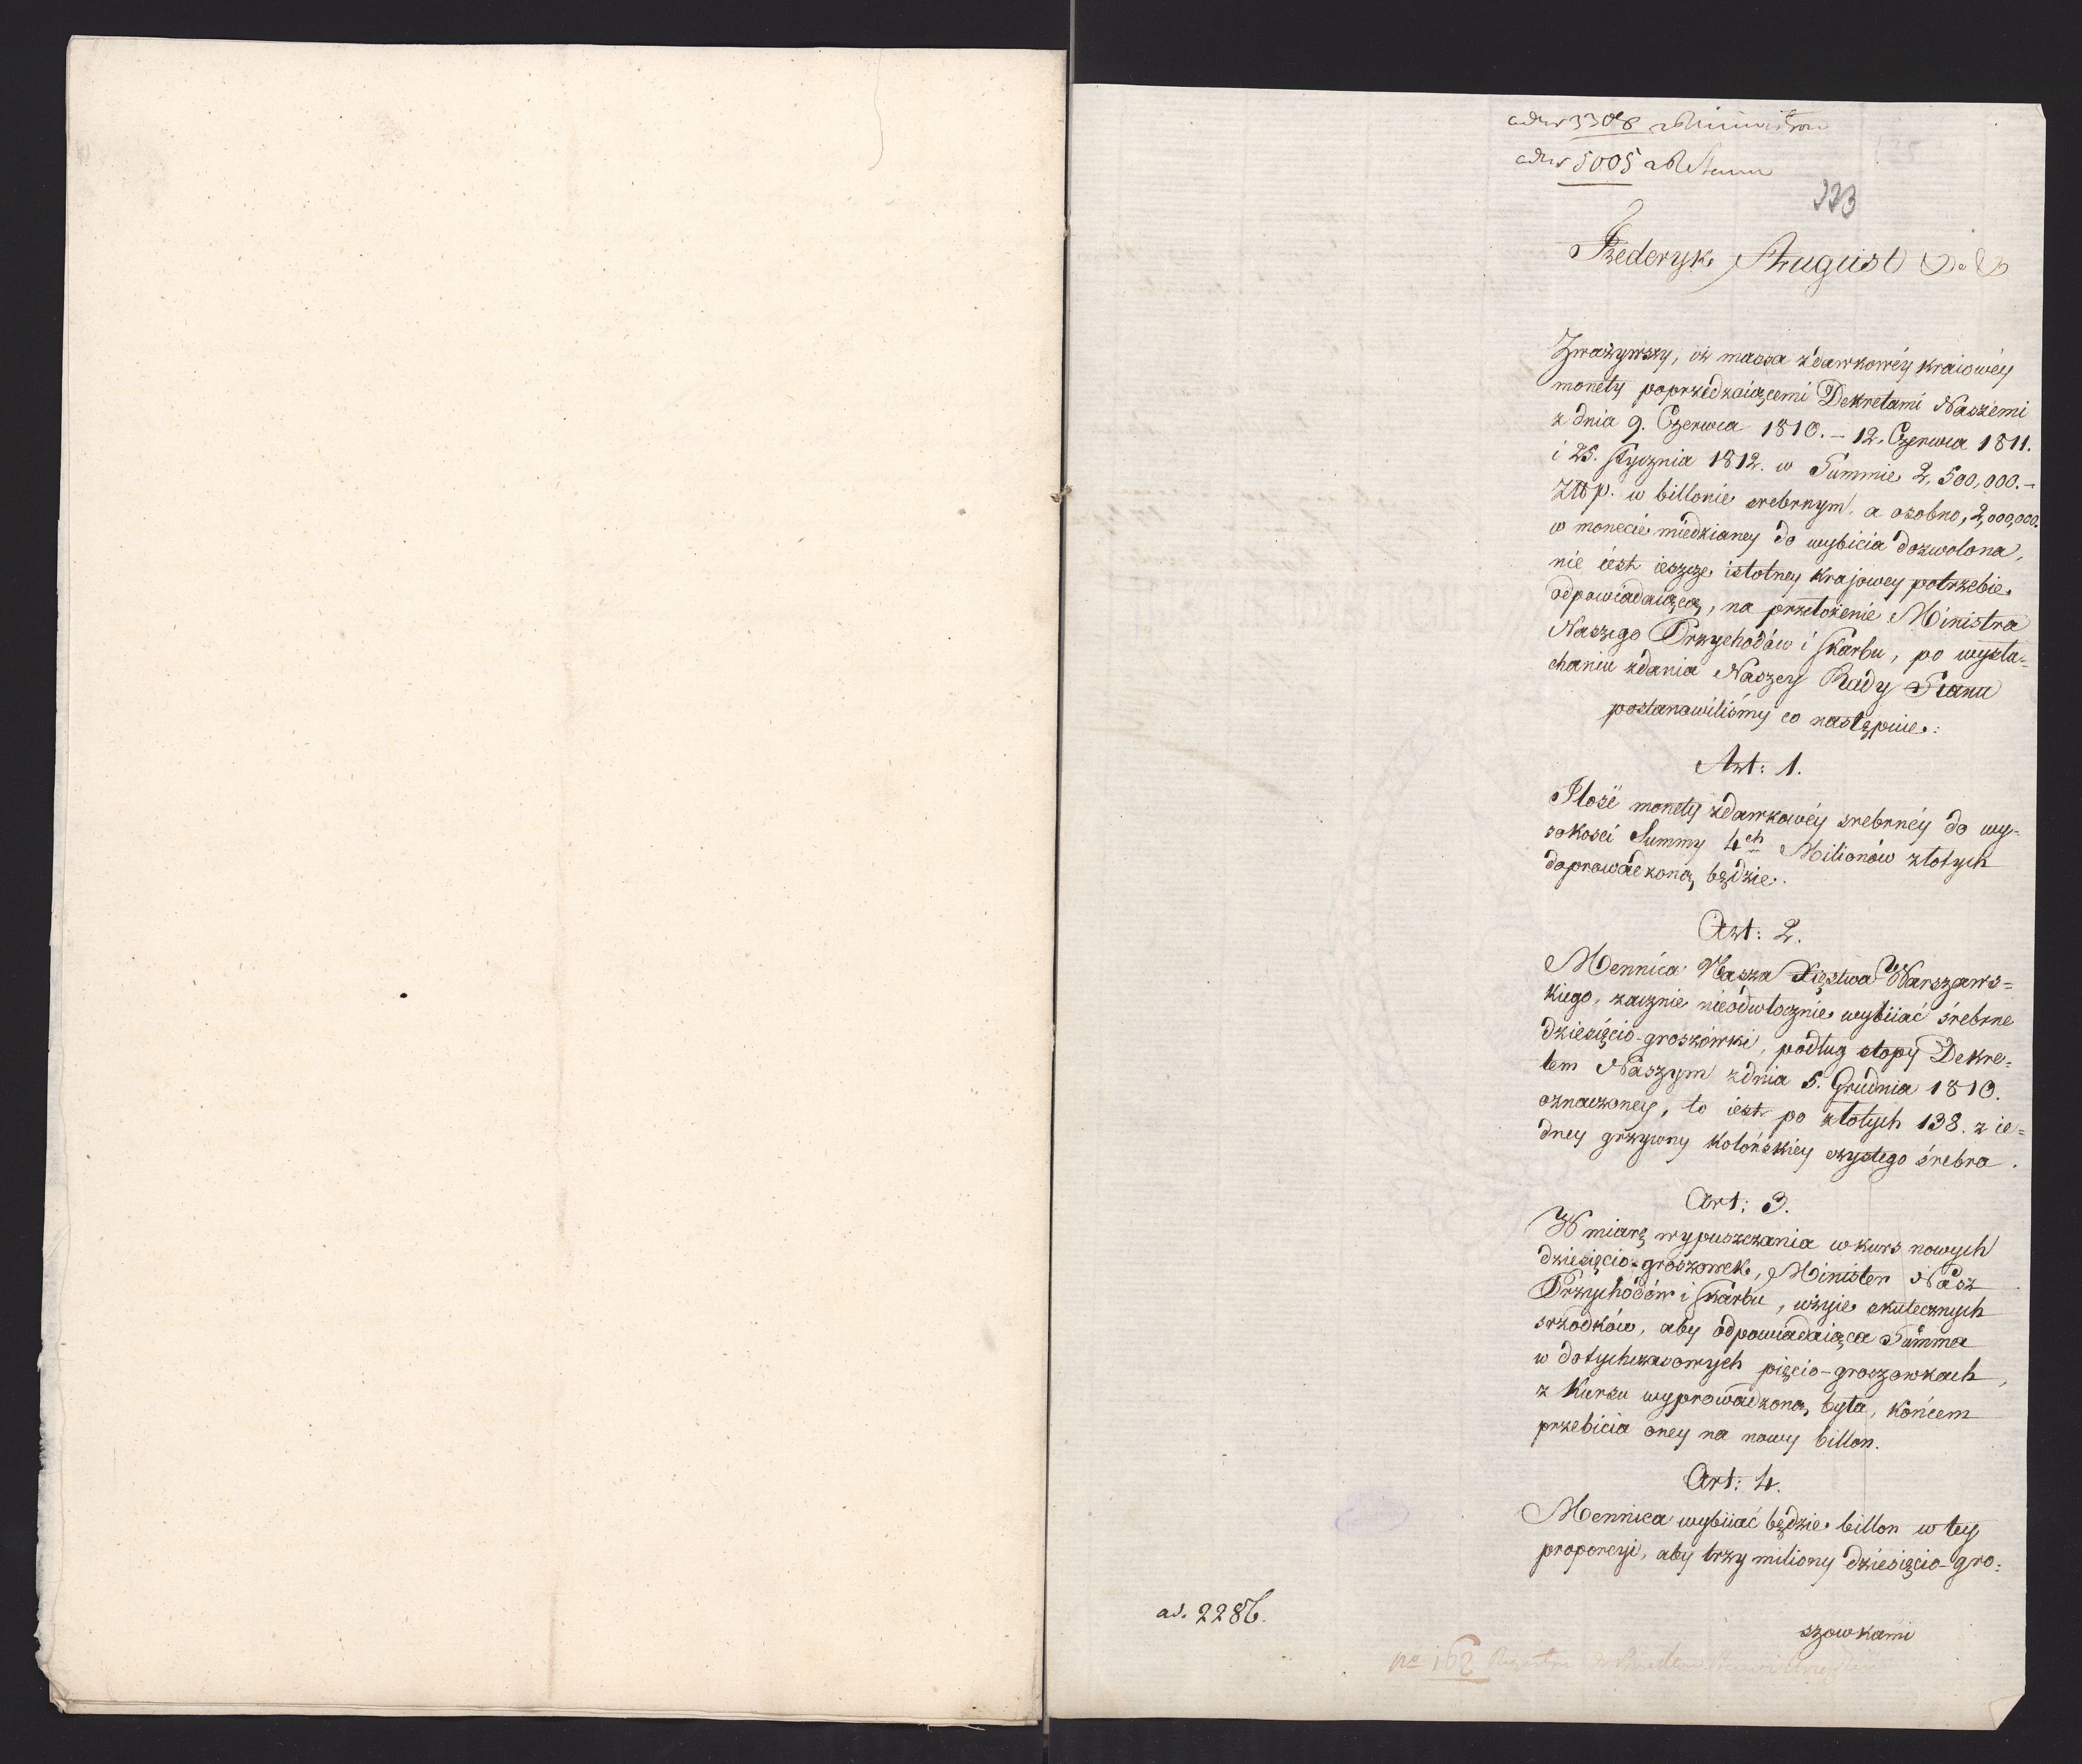 ad Nr 3308 R Ministrów
ad Nr 5005 R Stanu
333
Frederyk August
Zważywszy, iż massa zdawkowéy kraiowéy
monety poprzedzaiącemi Dekretami Naszemi
z dnia 9. Czerwca 1810. – 12. Czerwca 1811.
i 25. Stycznia 1812. w Summie 2,500,000.–
Złł p. w billonie srebrnym, a osobno, 2,000,000.
w monecie miedzianey do wybicia dozwolona,
nie iest ieszcze istotney Krajowey potrzebie
odpowiadaiącą, na przełożenie Ministra
Naszego Przychodów i Skarbu, po wysłu=
chaniu zdania Naszey Rady Stanu
postanowiliśmy co następuie:
Art: 1.
Ilość monety zdawkowéy srebrnéy do wy=
sokosci Summy 4ch Milionów złotych
doprowadzoną będzie.
Art: 2.
Mennica Nasza Xięstwa Warszaws=
kiego, zacznie nieódwłocznie wybiiać śrebrne
dziesięcio-groszówki, podług stopy Dekre=
tem Naszym z dnia 5. Grudnia 1810.
oznaczoney, to iest po złotych 138. z ie=
dney grzywny Kolońskiey czystego śrebra.
Art: 3.
W miarę wypuszczania w kurs nowych
dziesięcio-groszowek, Minister Nasz
Przychodów i Skarbu, użyie skutecznych
srzodków, aby odpowiadaiąca Summa
w dotychczasowych pięcio-groszowkach,
z Kursu wyprowadzoną była, końcem
przebicia oney na nowy billon.
Art: 4.
Mennica wybiiać będzie billon w tey
proporcyi, aby trzy miliony dziesięcio-gro=
szowkami
ad. 2286.
no 162